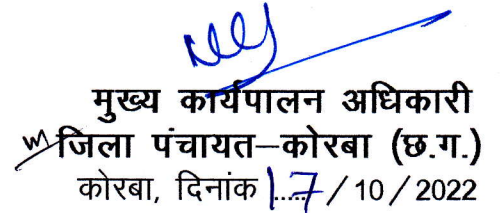 मुख्य कार्यपालन अधिकारी
जिला पंचायत–कोरबा (छ.ग.)
कोरबा, दिनांक 17/10/2022